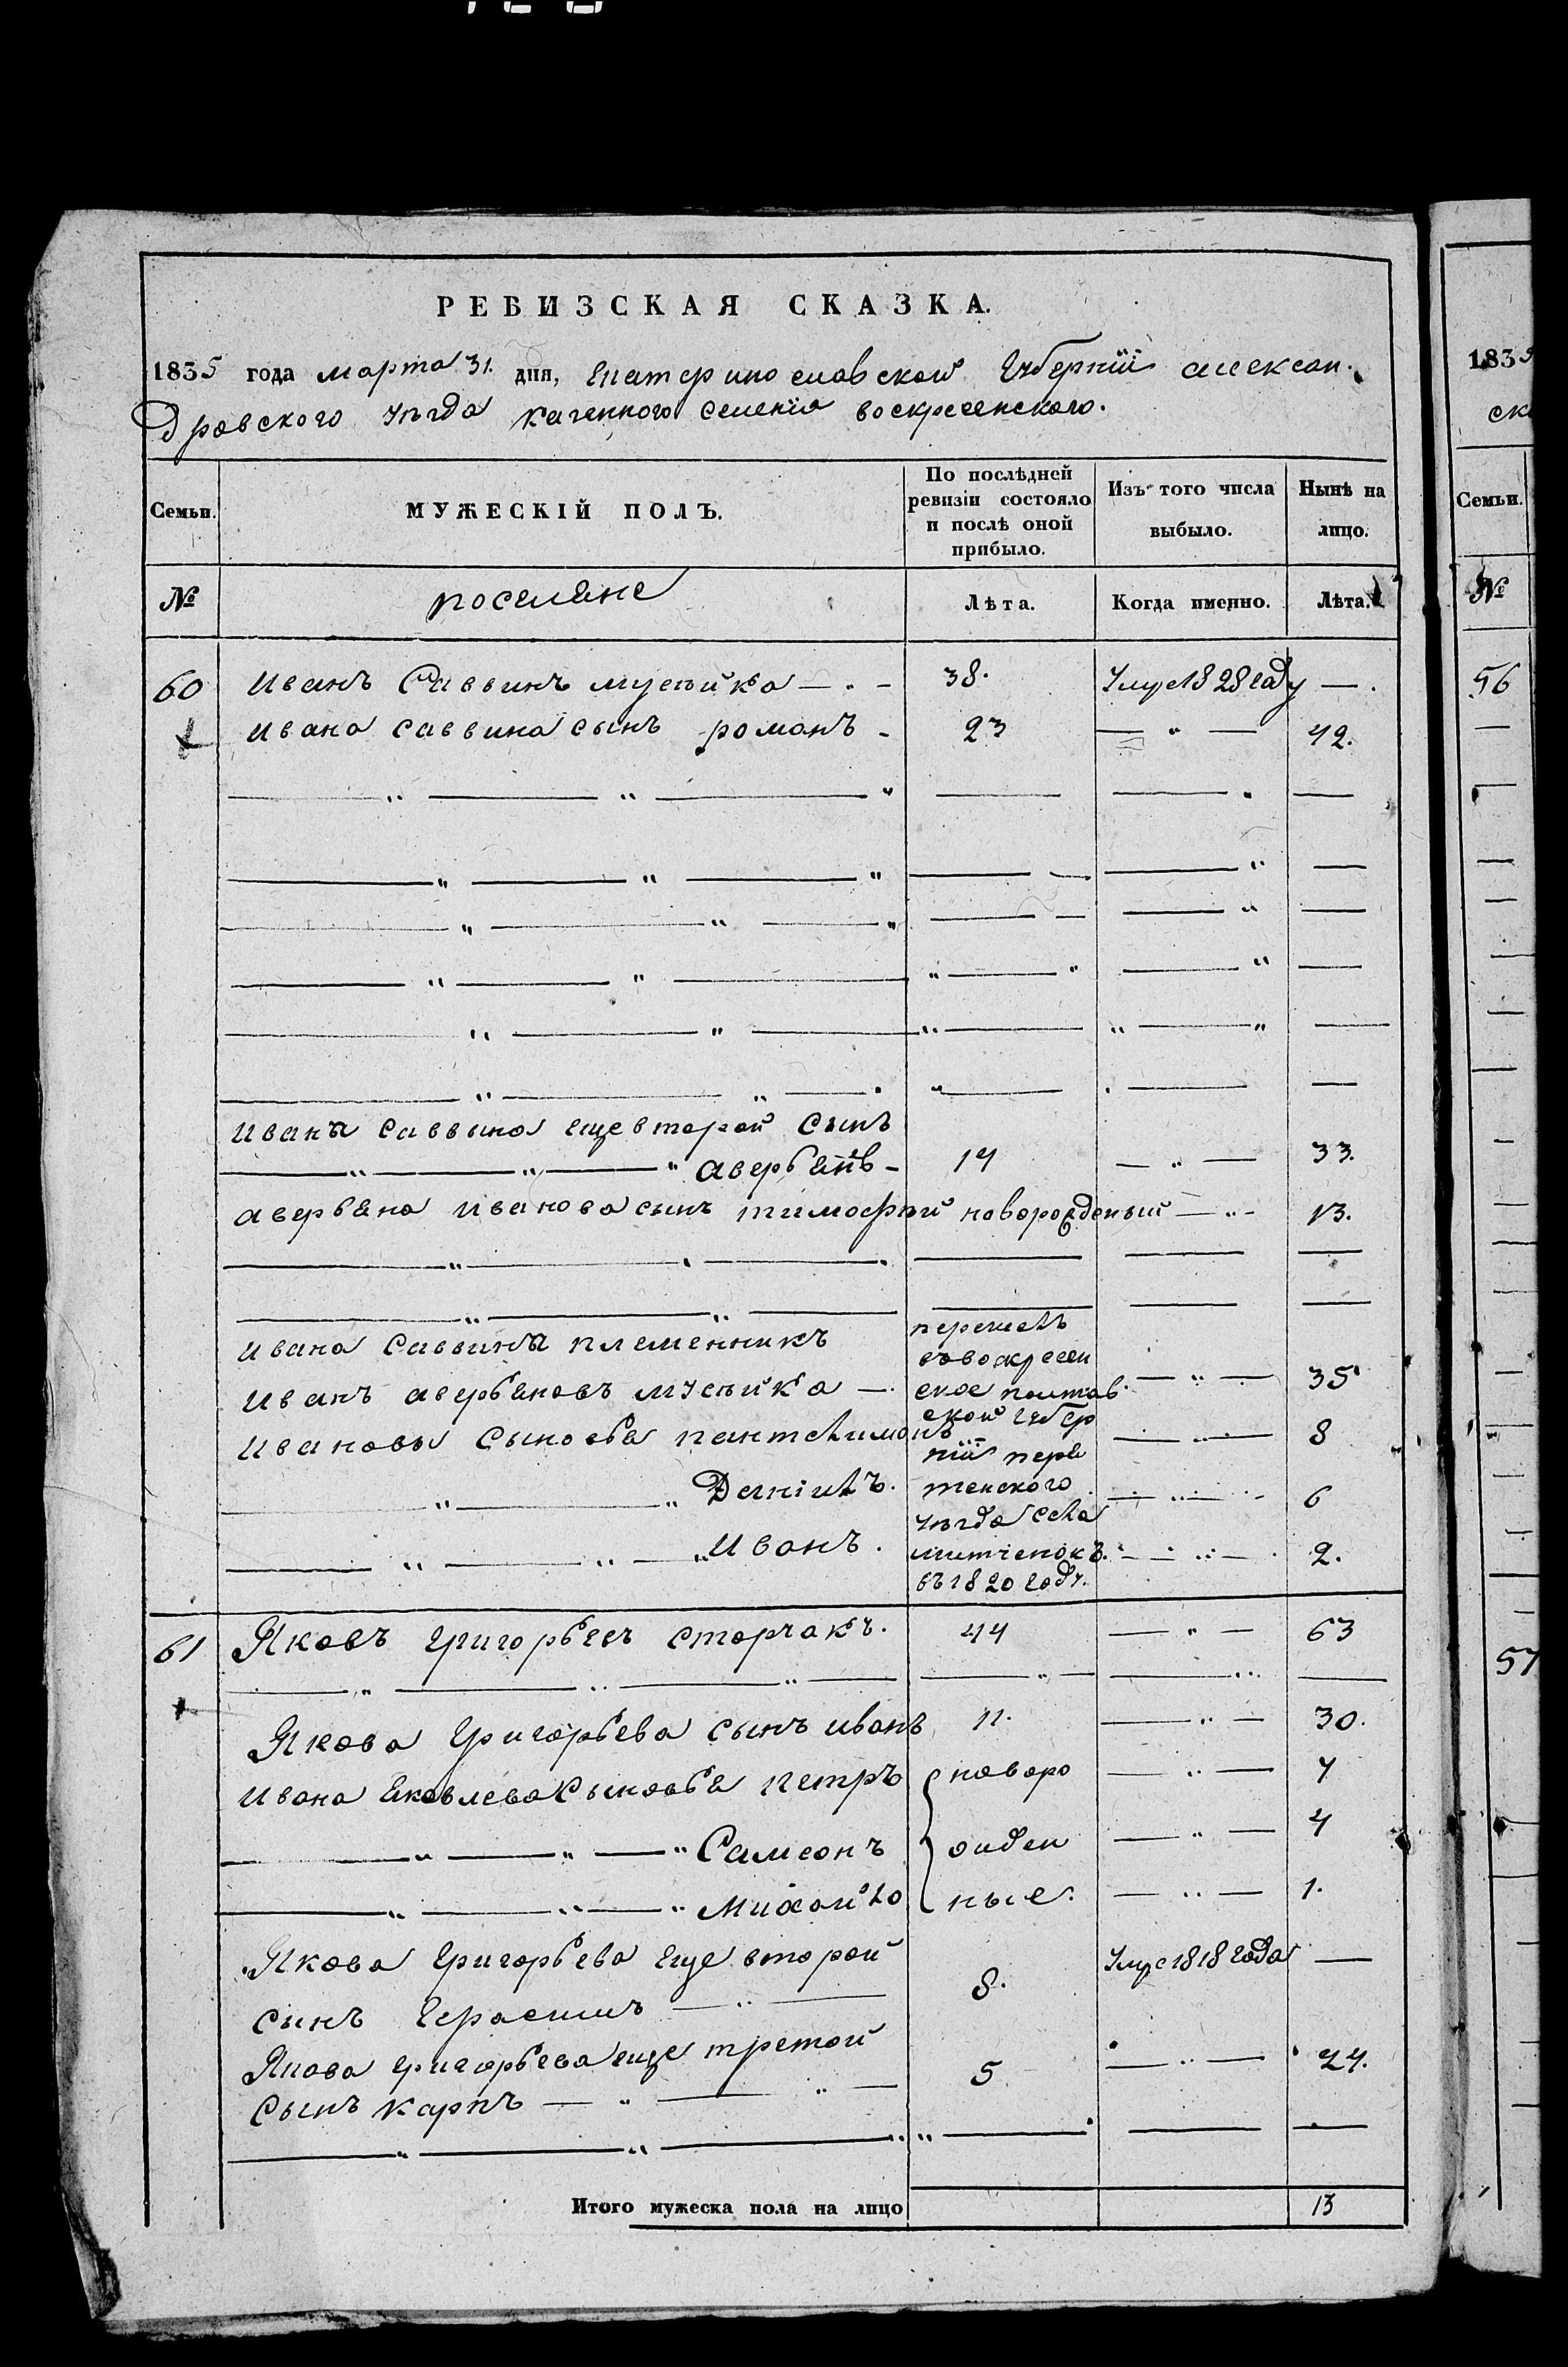 РЕВИЗСКАЯ СКАЗКА.
1835 года марта 31. дня, Екатеринославской Губерніи алексан.
дровского уезда казенного селенія воскресенского.
Семьи. МУЖЕСКІЙ ПОЛЪ. По послѣдней ревизіи состояло и послѣ оной прибыло. Изъ того числа выбыло. Нынѣ на лицо.
№ поселяне Лѣта. Когда именно. Лѣта.
60 Иванъ Саввинъ мусѣйка 38. Умре 1828 году
Ивана саввина сынъ романъ 23 42.
Ивана саввина еще второй сынъ
авербянъ 14 33.
авербяна Иванова сынъ тимофѣй новорожденый 13.
Ивана Саввина племенникъ
Иванъ авербяновъ мусѣйка 35
Ивановы сыновья пантелимонъ 8
Данiилъ. 6
Иванъ. 2.
перешелъ
въ воскресен
ское полтав
ской губер
ніи
уезда села
въ 1820 году.
61 Яковъ григорьевъ сторчакъ. 44 63
Якова григорьева сынъ иванъ 11. 30.
Ивана яковлева сыновья петръ новоро 7
Самсонъ жден 4
Михайло ные. 1.
Якова григорьева еще второй
сынъ Герасимъ 8. Умре 1818 года
Якова григорьева еще третой
сынъ карпъ 5 24.
Итого мужеска пола на лицо 13
1835
Семьи.
№
56
57